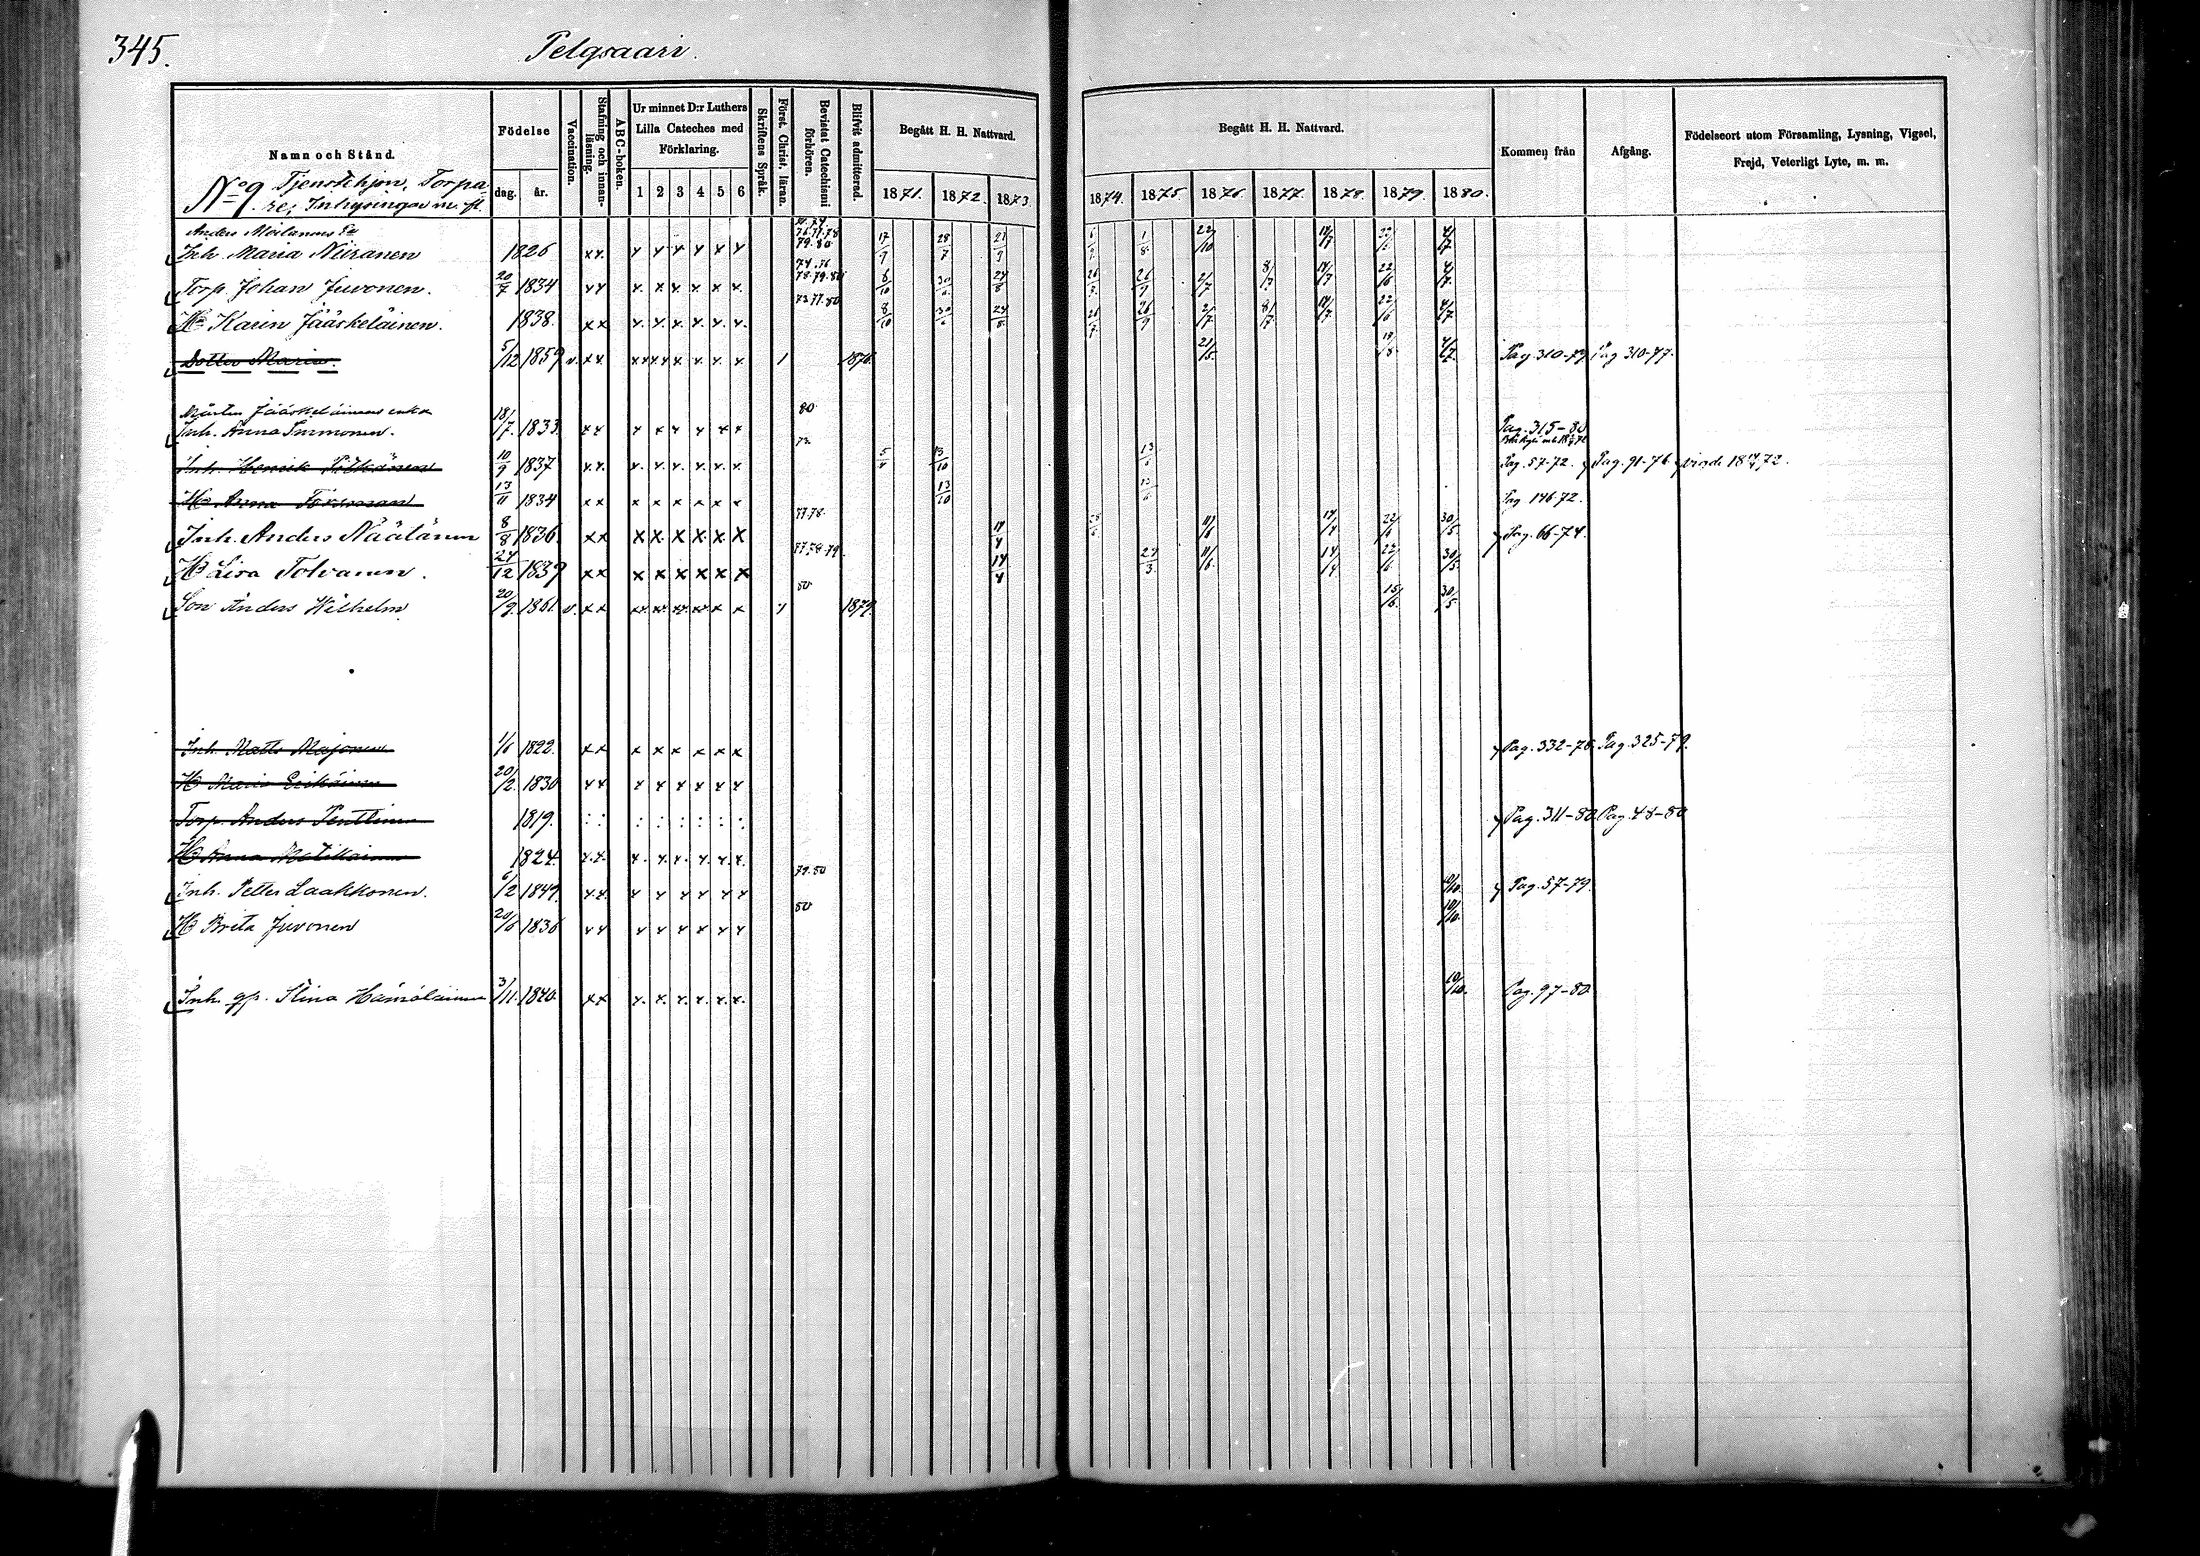 345.
Pelgsaari.
Namn och Stånd.
Födelse
dag. år.
Vaccination.
Stafning och innanläsning.
ABC-boken.
Ur minnet D:r Luthers Lilla Cateches med Förklaring.
1 2 3 4 5 6
Skriftens Språk.
Först. Christ. läran.
Bevistat Catechismi förhören.
Blifvit admitterad.
Begått H. H. Nattvard.
1871. 1872. 1873
Begått H. H. Nattvard.
1874. 1875. 1876. 1877. 1878. 1879. 1880.
Kommen från
Afgång.
Födelseort utom Församling, Lysning, Vigsel,
Frejd, Veterligt Lyte, m. m.
No 9. Tjenstehjon, Torpa
re, Inhysingar m. fl.
Anders Moilanens
Inh. Maria Niiranen 1826 xx x x x x x x 76.77.78 79.80 17/9 28/7 1/8 22/10 14/7 4/7
Torp. Johan Juvonen. 20/7 1834 xx x x x x x x 74.76 78.79.80 6/10 30/6 24/8 26/9 2/7 8/7 14/7 22/6 4/7
H Karin Jääskeläinen. 1838. xx x x x x x x 77.80 8/10 30/6 24/8 26/9 2/7 8/7 14/7 22/6 4/7
Dotter Maria. 5/12 1859 v. xx xx xx x x x x 1 1876 21/5 4/7 Pag. 310-77 Pag 310-77.
Mårten Jääskeläinens enka 80
Inh. Anna Immonen. 18/7 1833 xx x x x x x x Pag. 315-80
Inh. Henrik Pitkänen 10/9 1837 xx x x x x x x 72 13/10 13/6 Pag. 57-72. Pag. 91-76 72.
H Anna 13/11 1834 xx x x x x x x 13/10 13/6 Pag 146-72.
Inh. Anders Näätänen 8/8 1836 xx x x x x x x 77.78. 14/4 11/6 14/4 22/6 30/5 Pag. 66-74.
H Lisa Tolvanen. 24/12 1837 xx x x x x x x 77.78.79. 14/4 24/3 11/6 14/4 22/6 30/5
Son Anders Wilhelm 20/9 1861 v. xx xx xx xx xx x x 1 80 1879 15/6 30/5
Inh. Matts Majonen 1/6 1822 xx x x x x x x Pag. 332-78 Pag. 325-79.
H Maria 20/2 1830 xx x x x x x x
Torp. Anders Penttinen 1819. : : : : : : : : Pag. 311-80 Pag. 48-80
H Anna Matikainen 1824 x.x. x x x x x x
Inh. Petter Laakkonen. 6/2 1849 xx x x x x x x 79.80 10/10 Pag. 57-79.
H Breta Juvonen 20/6 1836 xx x x x x x x 80 10/10
Inh. gp. Stina Hämäläinen 3/11. 1840 xx x x x x x x 10/10. Pag. 97-80